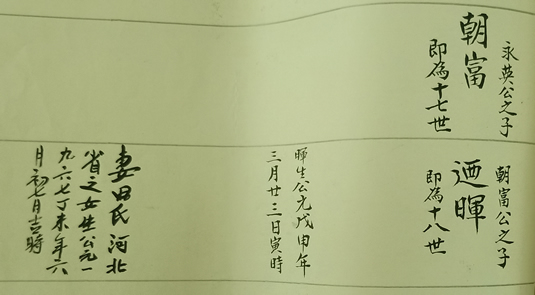 永英公之子
朝富
即為十七世
朝富公之子
迺暉
即為十八世
暉生公元戊申年
三月廿三日寅時
妻田氏河北
省之女生公元一
九六七丁未年六
月初七日吉時